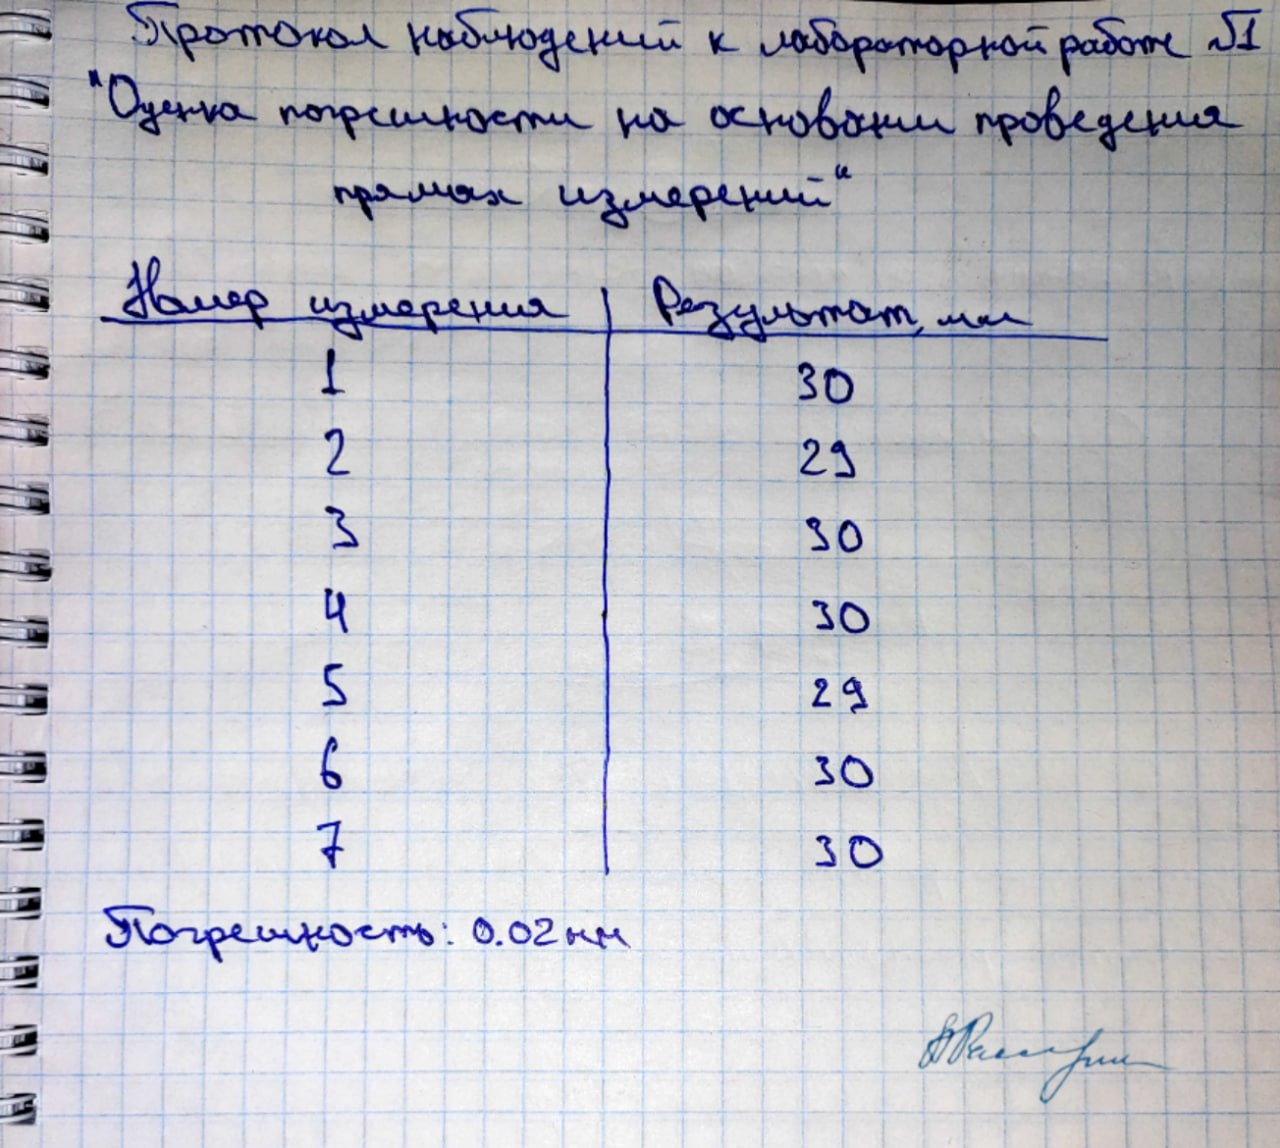 Протокол наблюдений к лабораторной работе №1
"Оценка погрешности на основании проведения
прямых измерений"
Номер измерения | Результат, мм
1 30
2 29
3 30
4 30
5 29
6 30
7 30
Погрешность: 0.02 мм